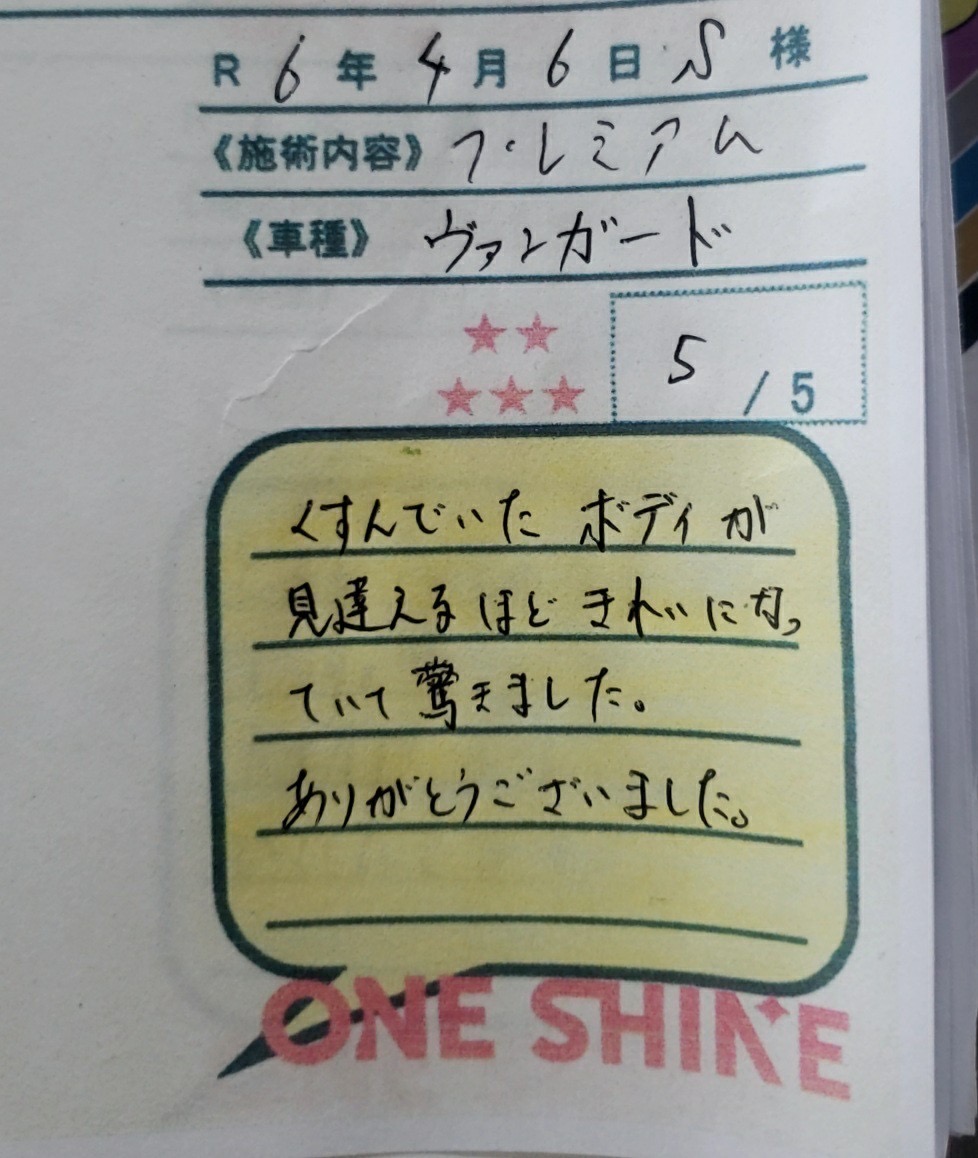 R 6年 4月 6日 S 様
《施術内容》プレミアム
《車種》ヴァンガード
★★
★★★
5 / 5
くすんでいた ボディが
見違えるほど きれいになっ
ていて驚きました。
ありがとうございました。
ONE SHINE